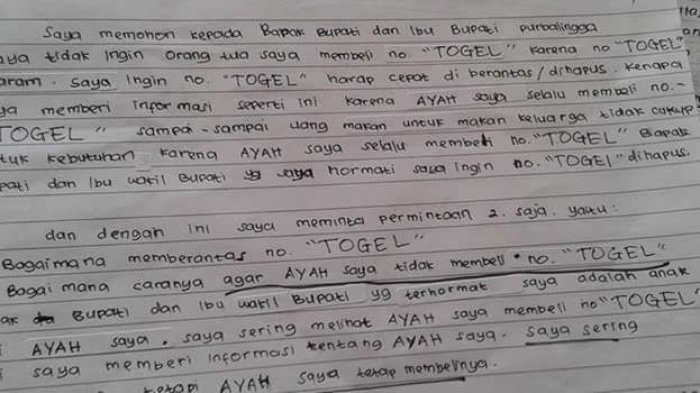 Saya memohon kepada Bapak Bupati dan Ibu Bupati purbalingga
aya tidak ingin orang tua saya membeli no. "TOGEL" karena no "TOGEL"
aram. Saya Ingin no. "TOGEL" harap cepat di berantas/dihapus. kenapa
ya memberi informasi seperti ini karena AYAH saya selalu membeli no.-
TOGEL" sampai-sampai uang makan untuk makan keluarga tidak cukup
tuk kebutuhan karena AYAH saya selalu membeli no. "TOGEL" Bapak
pati dan Ibu wakil Bupati yg hormati saya ingin no. "TOGEL" dihapus.
dan dengan ini saya meminta permintaan 2. saja. yaitu:
Bagaimana memberantas no. "TOGEL"
Bagai mana caranya agar AYAH saya tidak membeli no. "TOGEL"
ak Bupati dan Ibu wakil Bupati yg terhormat saya adalah anak
i AYAH saya. saya sering melihat AYAH saya membeli no "TOGEL"
saya memberi informasi tentang AYAH saya. saya sering
tetapi AYAH saya tetap membelinya.